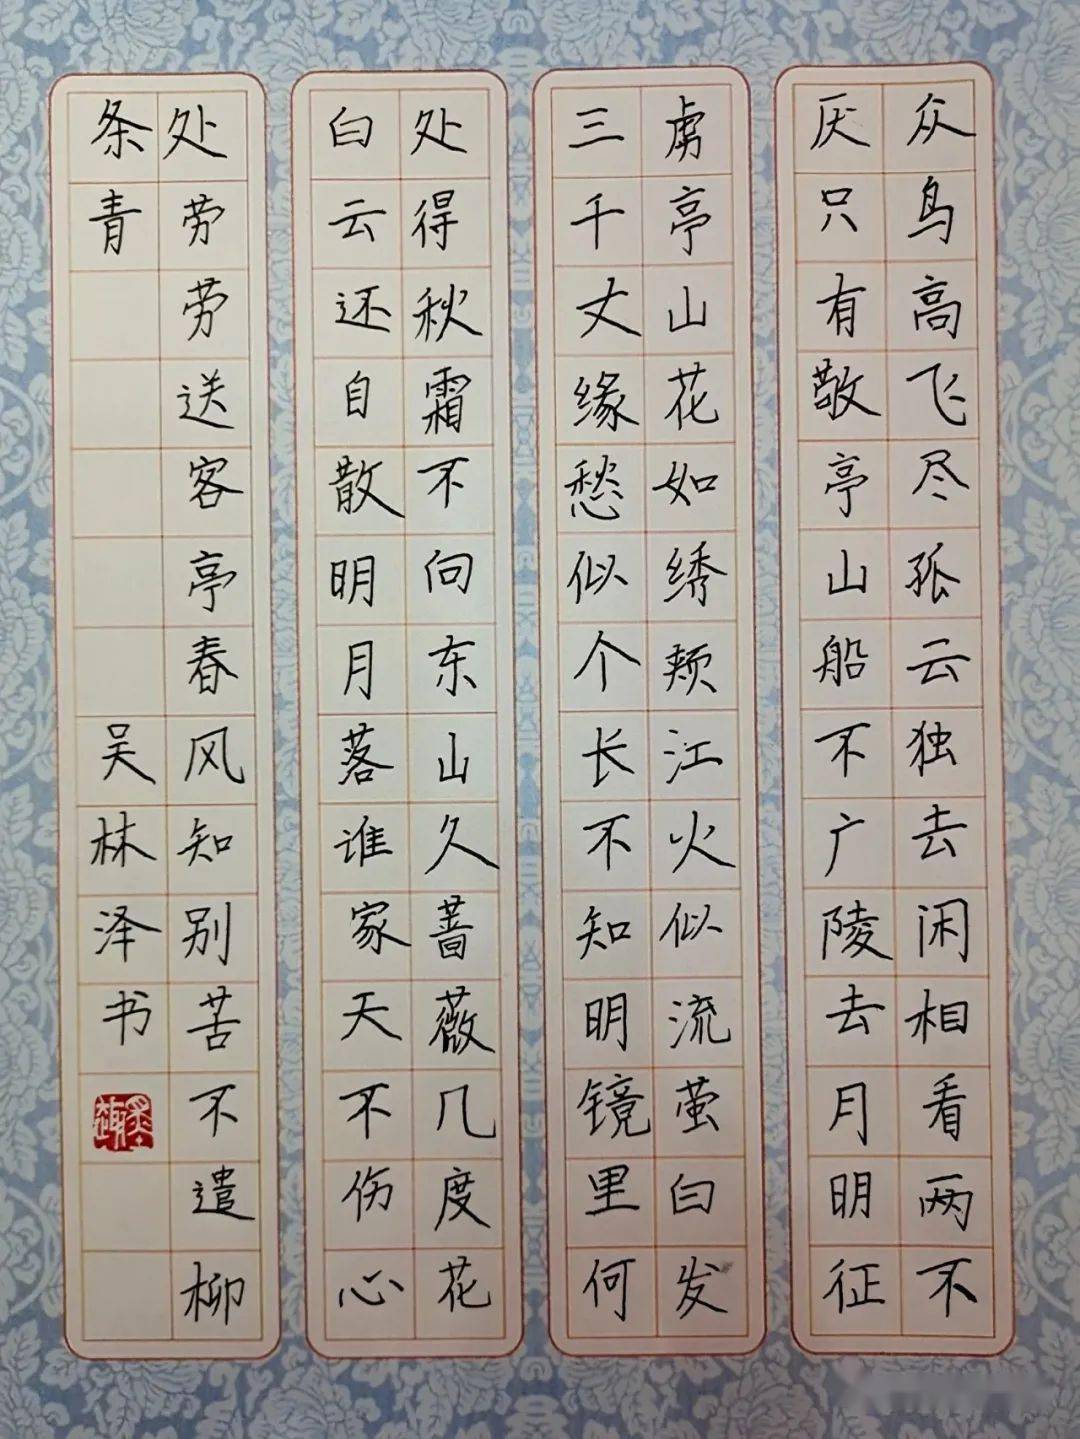 众鸟高飞尽孤云独去闲相看两不
厌只有敬亭山船不广陵去月明征
虏亭山花如绣颊江火似流萤白发
三千丈缘愁似个长不知明镜里何
处得秋霜不向东山久蔷薇几度花
白云还自散明月落谁家天不伤心
处劳劳送客亭春风知别苦不遣柳
条青
吴林泽书
墨趣